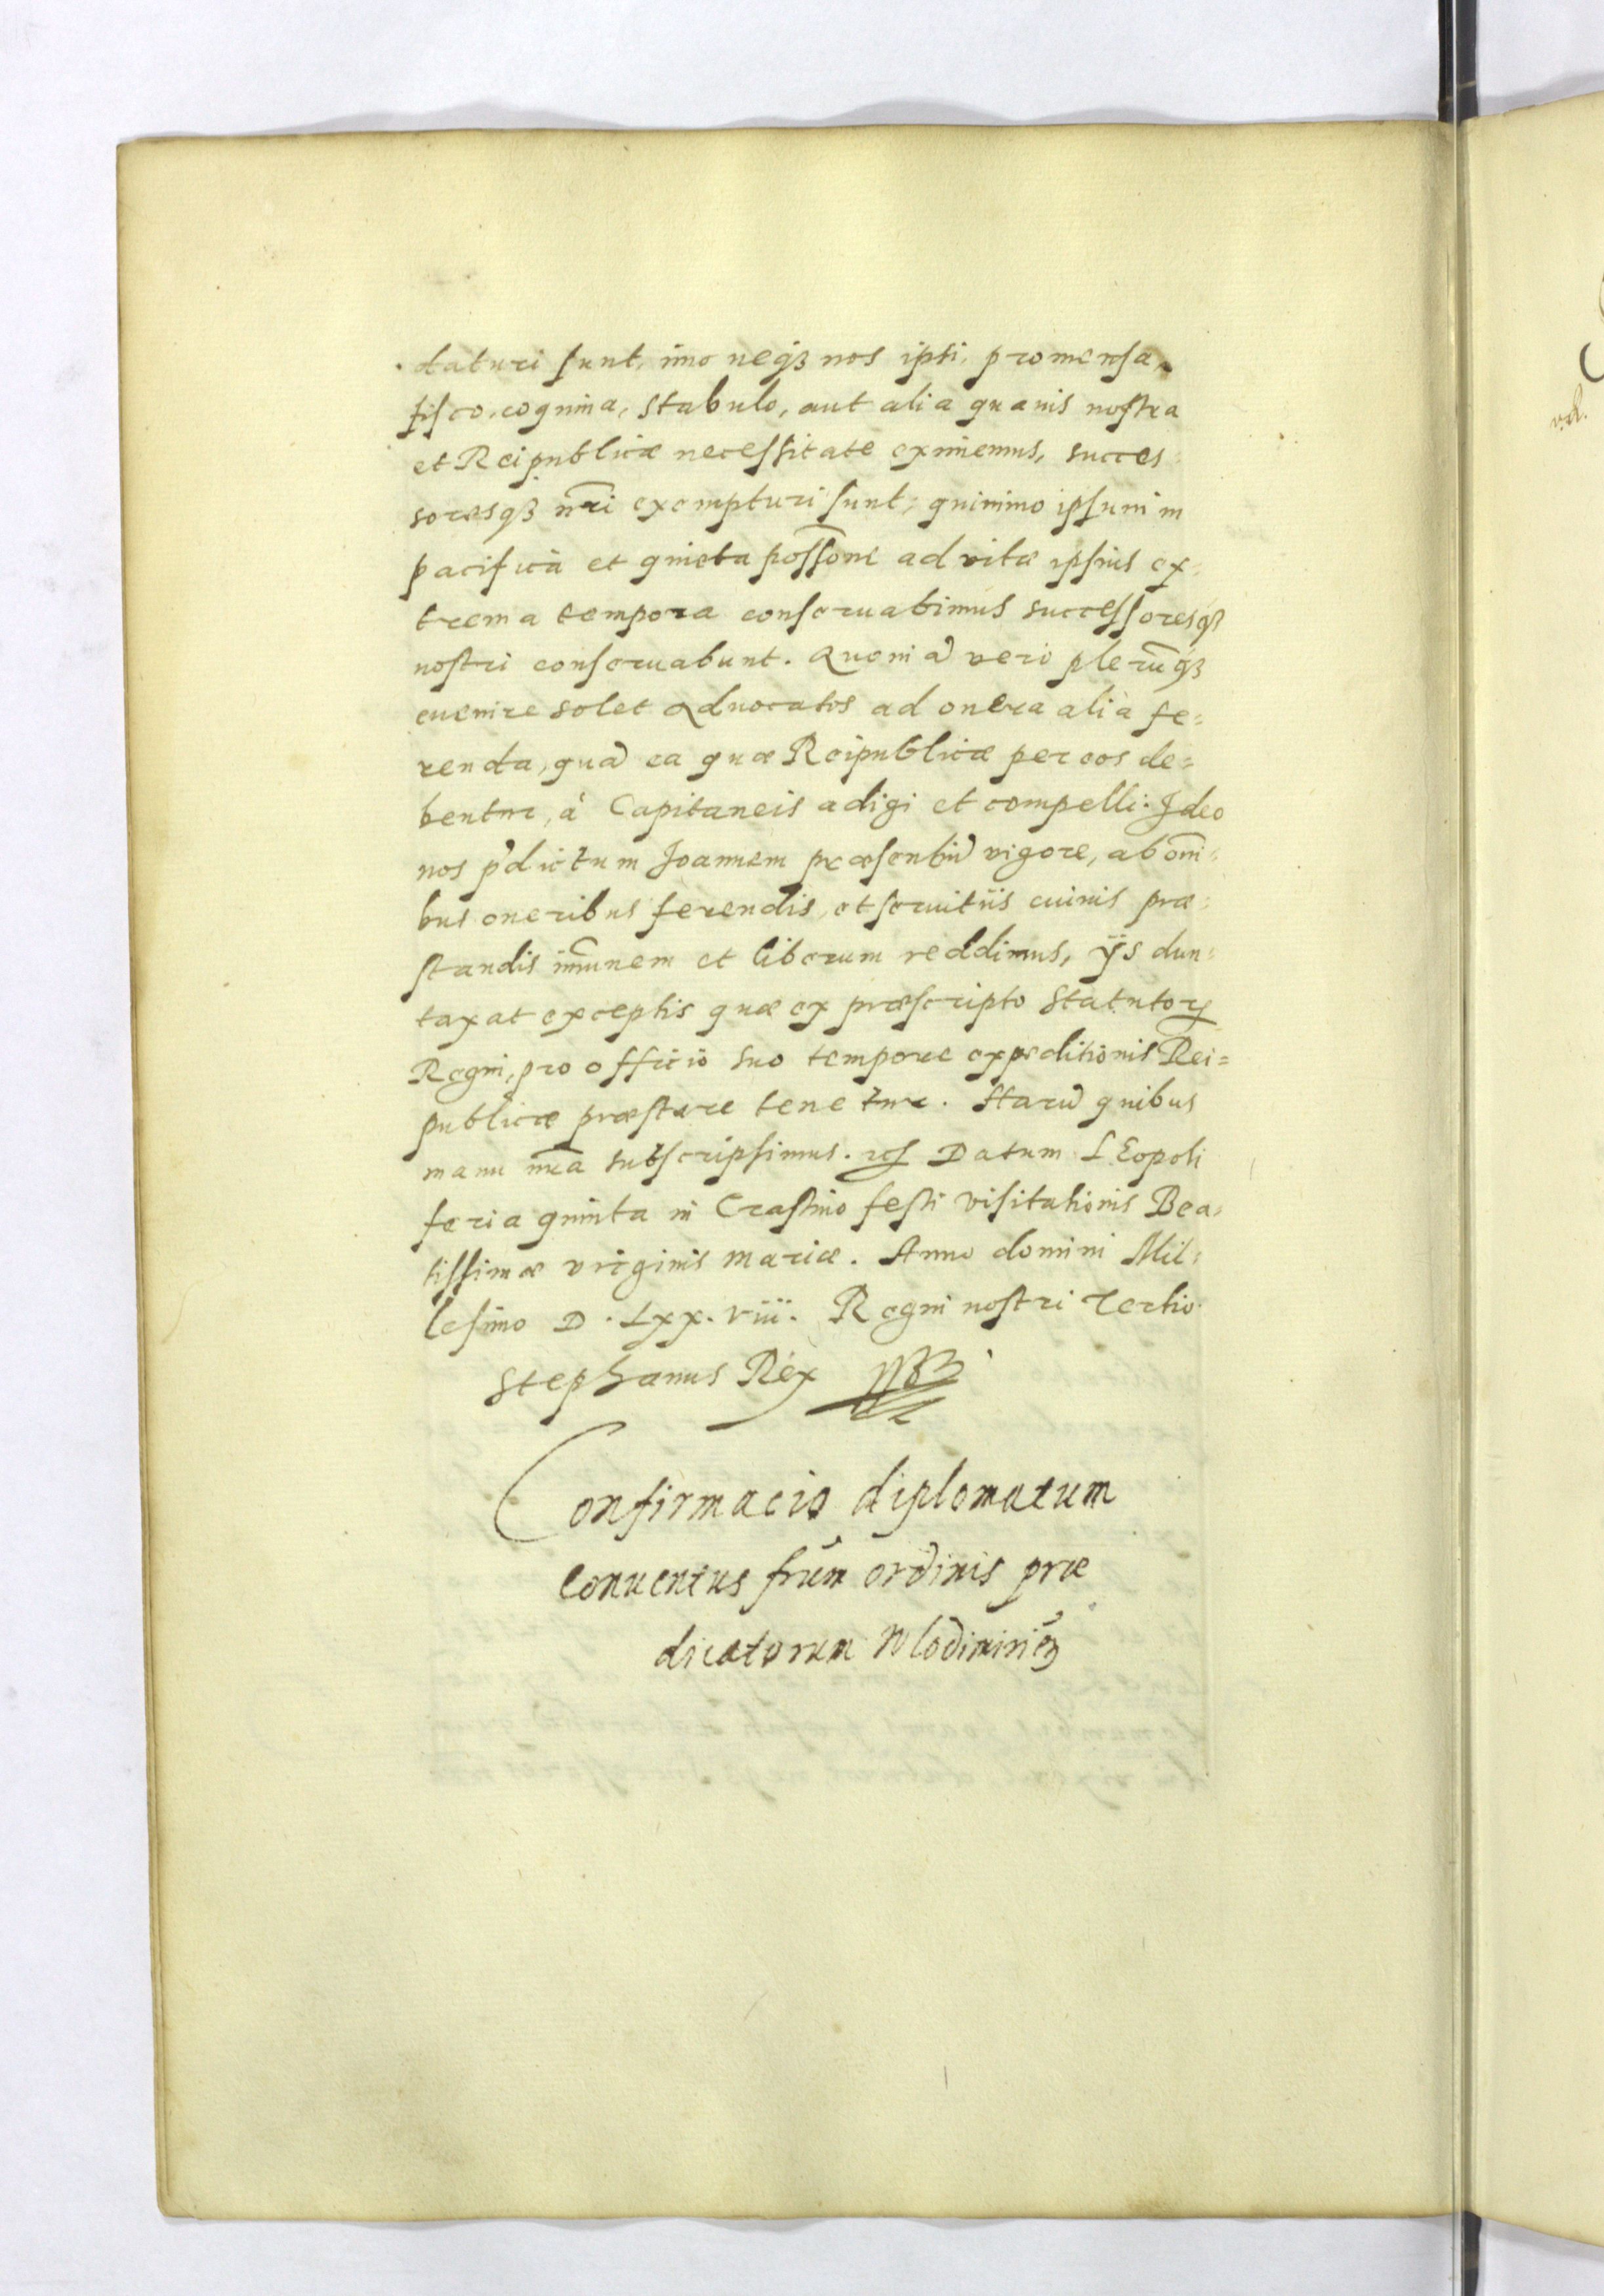 daturi sunt, imo neqȝ nos ipsi, pro mensa,
fisco, coquina, stabulo, aut alia quauis nostra
et Reipublicæ necessitate eximemus, succes
soresqȝ nr̃i exempturi sunt, quinimo ipsum in
pacifica et quieta possõne ad vitæ ipsius ex-
trema tempora conseruabimus successoresqȝ
nostri conseruabunt. Quoniã vero plerũqȝ
euenire solet Aduocatos ad onera alia fe=
renda, quã ea quæ Reipublicæ per eos de=
bentur, à Capitaneis adigi et compelli: Ideo
nos p̃dictum Joannem præsentiũ vigore, ab om̃i-
bus oneribus ferendis, et seruitiis cuiuis præ-
standis im̃unem et liberum reddimus, ÿs dun-
taxat exceptis quæ ex præscripto Statutoꝝ
Regni, pro officio suo tempore expeditionis Rei=
publicæ præstare tenetur. Harũ quibus
manu nr̃a subscripsimus. Datum LEopoli
feria quinta in Crastino festi visitationis Bea-
tissimæ virginis mariæ. Anno domini Mil-
lesimo D. Lxx. viii. Regni nostri Tertio
Stephanus Rex
Confirmacio diplomatum
conuentus frũm ordinis præ
dicatorum Wlodimiriẽȝ
vd.